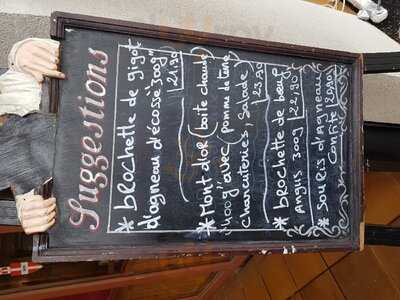 Suggestions
* brochette de gigot
d'agneau d'écosse "300g"
21.90
* Mont d'or (boite chaude)
400g "avec (pomme de terre
charcuteries, salade)
23.90
* brochette de bœuf
Angus 300g 22,90
* souris d'Agneau
Confite